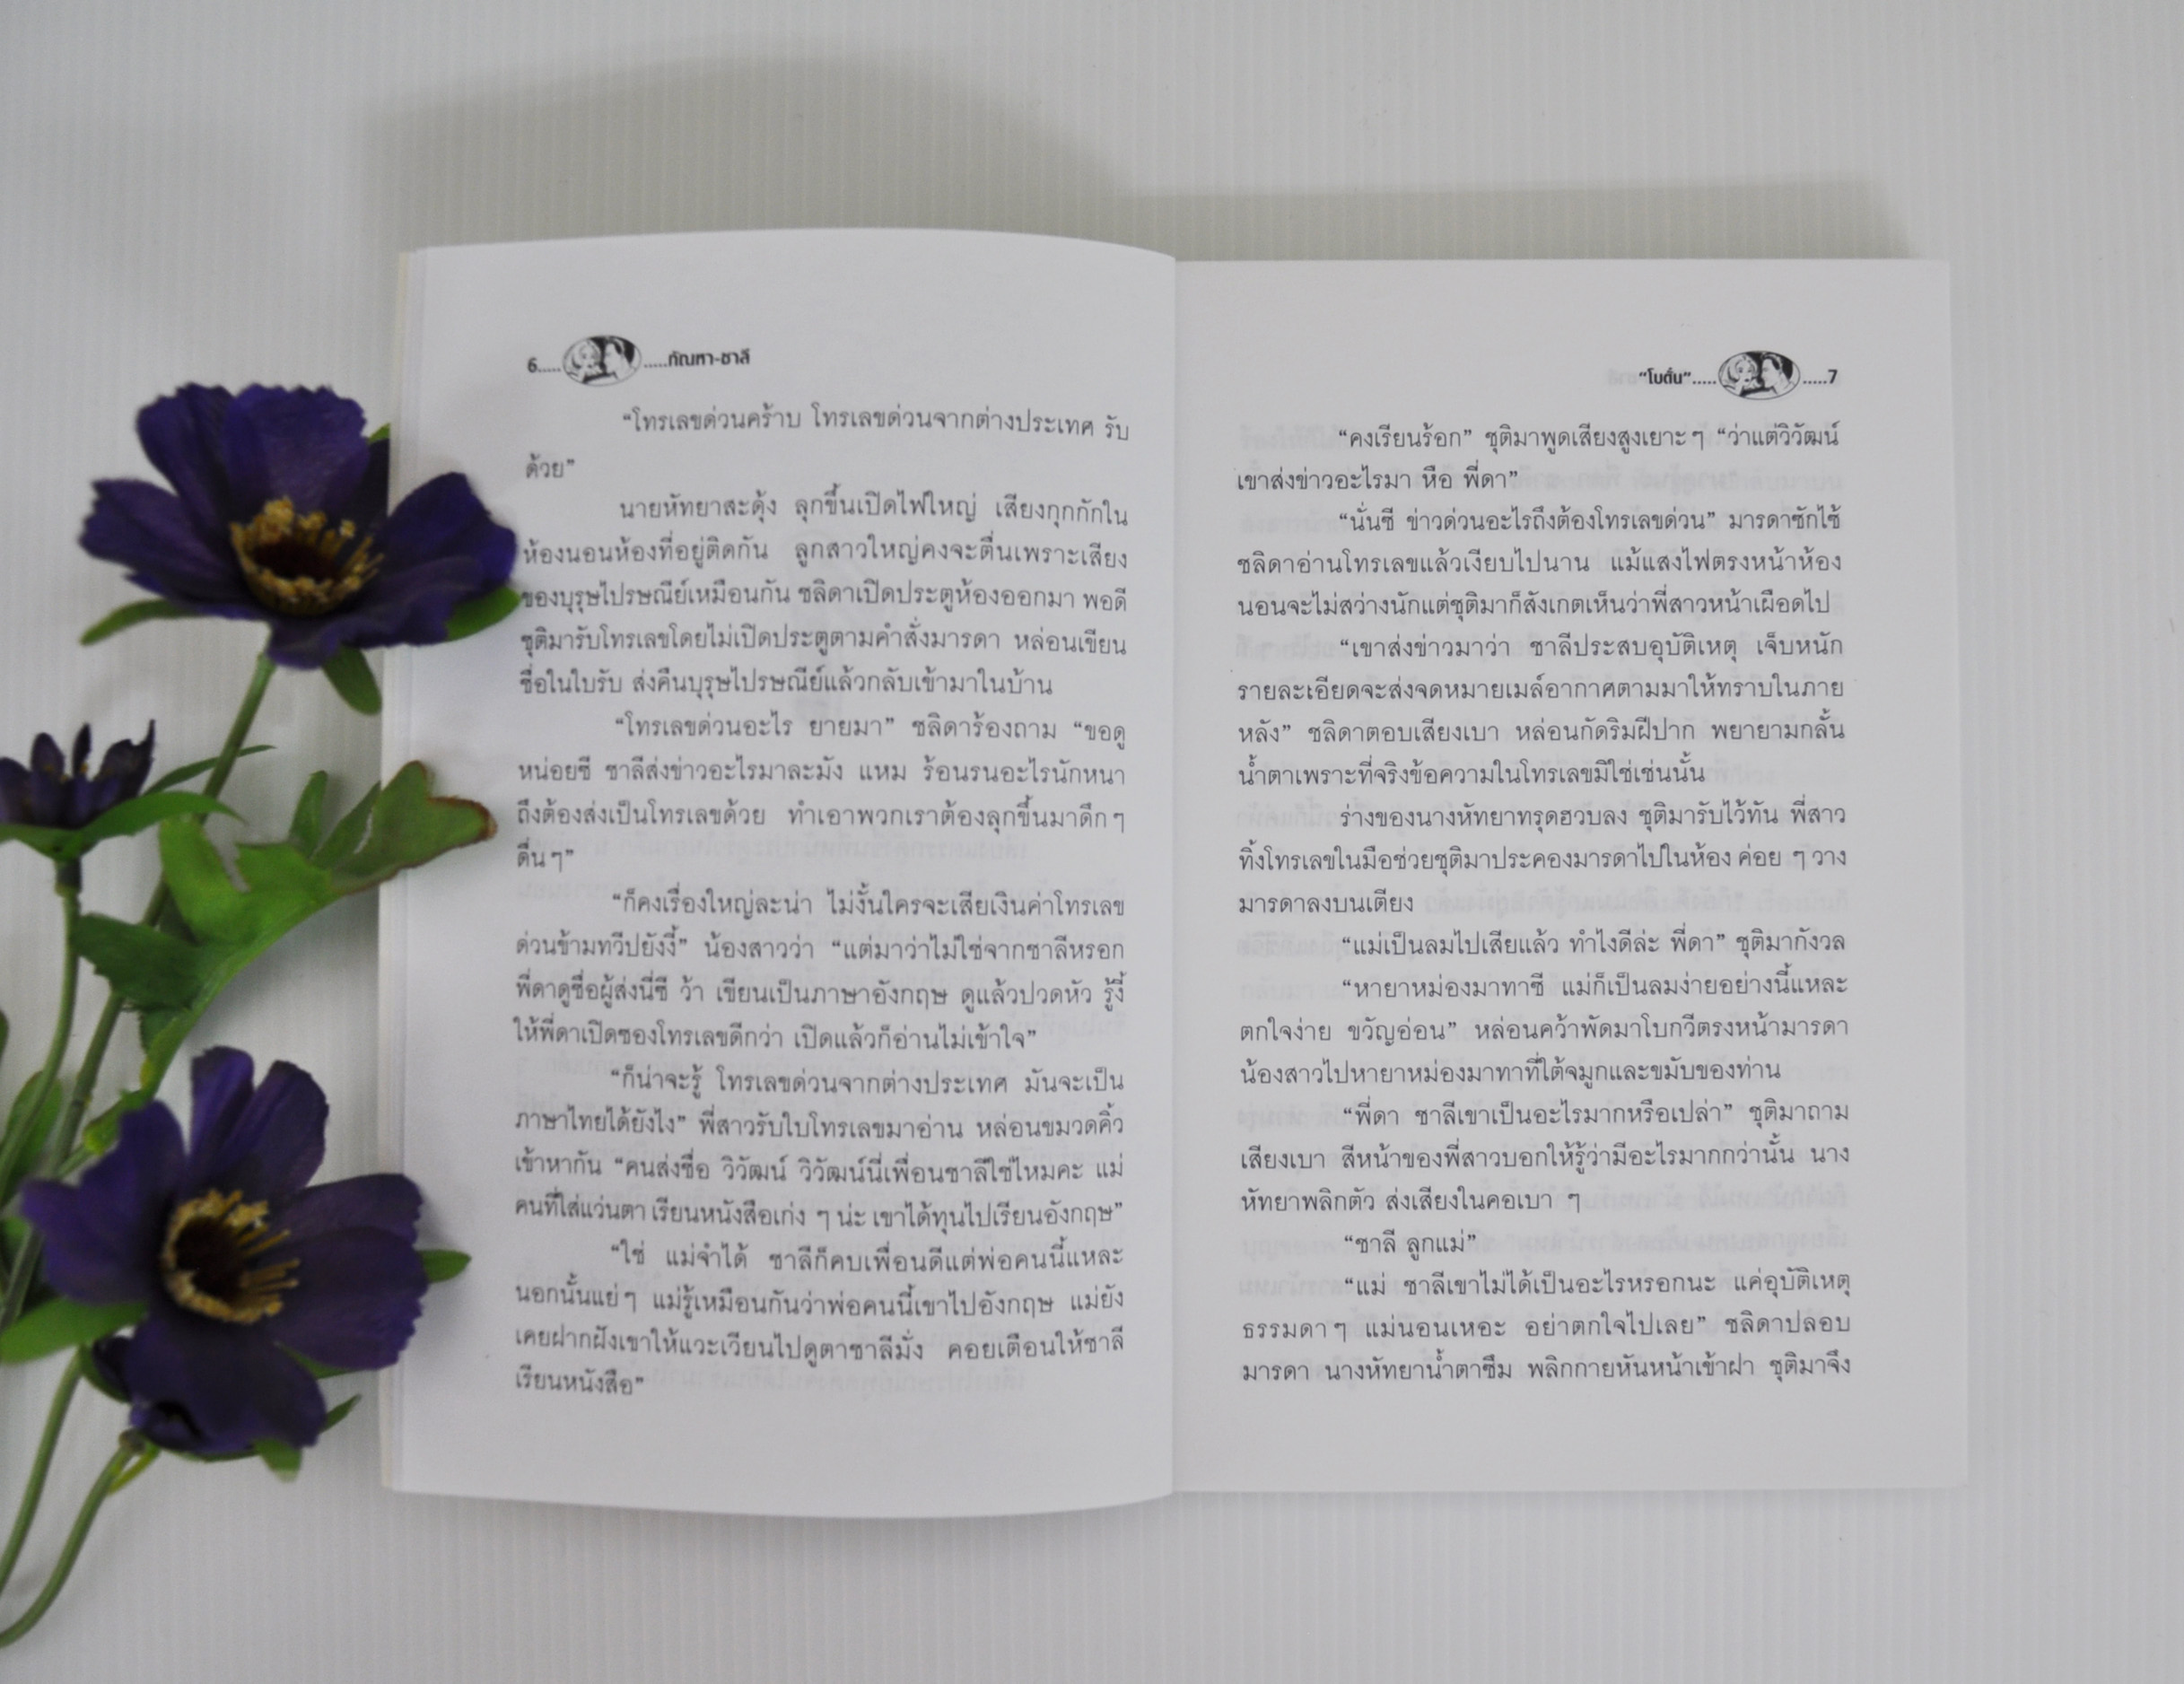 6..... .....กัณหา-ชาลี
“โทรเลขด่วนคร้าบ โทรเลขด่วนจากต่างประเทศ รับ
ด้วย”
นายหัทยาสะดุ้ง ลุกขึ้นเปิดไฟใหญ่ เสียงกุกกักใน
ห้องนอนห้องที่อยู่ติดกัน ลูกสาวใหญ่คงจะตื่นเพราะเสียง
ของบุรุษไปรษณีย์เหมือนกัน ชลิดาเปิดประตูห้องออกมา พอดี
ชุติมารับโทรเลขโดยไม่เปิดประตูตามคำสั่งมารดา หล่อนเขียน
ชื่อในใบรับ ส่งคืนบุรุษไปรษณีย์แล้วกลับเข้ามาในบ้าน
“โทรเลขด่วนอะไร ยายมา” ชลิดาร้องถาม “ขอดู
หน่อยซี ชาลีส่งข่าวอะไรมาละมัง แหม ร้อนรนอะไรนักหนา
ถึงต้องส่งเป็นโทรเลขด้วย ทำเอาพวกเราต้องลุกขึ้นมาดึกๆ
ดื่นๆ”
“ก็คงเรื่องใหญ่ละน่า ไม่งั้นใครจะเสียเงินค่าโทรเลข
ด่วนข้ามทวีปยังงี้” น้องสาวว่า “แต่มาว่าไม่ใช่จากชาลีหรอก
พี่ดาดูชื่อผู้ส่งนี่ซี ว้า เขียนเป็นภาษาอังกฤษ ดูแล้วปวดหัว รู้งี้
ให้พี่ดาเปิดซองโทรเลขดีกว่า เปิดแล้วก็อ่านไม่เข้าใจ”
“ก็น่าจะรู้ โทรเลขด่วนจากต่างประเทศ มันจะเป็น
ภาษาไทยได้ยังไง” พี่สาวรับใบโทรเลขมาอ่าน หล่อนขมวดคิ้ว
เข้าหากัน “คนส่งชื่อ วิวัฒน์ วิวัฒน์นี่เพื่อนชาลีใช่ไหมคะ แม่
คนที่ใส่แว่นตา เรียนหนังสือเก่ง ๆ น่ะ เขาได้ทุนไปเรียนอังกฤษ”
“ใช่ แม่จำได้ ชาลีก็คบเพื่อนดีแต่พ่อคนนี้แหละ
นอกนั้นแย่ๆ แม่รู้เหมือนกันว่าพ่อคนนี้เขาไปอังกฤษ แม่ยัง
เคยฝากฝังเขาให้แวะเวียนไปดูตาชาลีมั่ง คอยเตือนให้ชาลี
เรียนหนังสือ”
“โบตั๋น”..... .....7
“คงเรียนร้อก” ชุติมาพูดเสียงสูงเยาะๆ “ว่าแต่วิวัฒน์
เขาส่งข่าวอะไรมา หือ พี่ดา”
“นั่นซี ข่าวด่วนอะไรถึงต้องโทรเลขด่วน” มารดาซักไซ้
ชลิดาอ่านโทรเลขแล้วเงียบไปนาน แม้แสงไฟตรงหน้าห้อง
นอนจะไม่สว่างนักแต่ชุติมาก็สังเกตเห็นว่าพี่สาวหน้าเผือดไป
“เขาส่งข่าวมาว่า ชาลีประสบอุบัติเหตุ เจ็บหนัก
รายละเอียดจะส่งจดหมายเมล์อากาศตามมาให้ทราบในภาย
หลัง” ชลิดาตอบเสียงเบา หล่อนกัดริมฝีปาก พยายามกลั้น
น้ำตาเพราะที่จริงข้อความในโทรเลขมิใช่เช่นนั้น
ร่างของนางหัทยาทรุดฮวบลง ชุติมารับไว้ทัน พี่สาว
ทิ้งโทรเลขในมือช่วยชุติมาประคองมารดาไปในห้อง ค่อย ๆ วาง
มารดาลงบนเตียง
“แม่เป็นลมไปเสียแล้ว ทำไงดีล่ะ พี่ดา” ชุติมากังวล
“หายาหม่องมาทาซี แม่ก็เป็นลมง่ายอย่างนี้แหละ
ตกใจง่าย ขวัญอ่อน” หล่อนคว้าพัดมาโบกวีตรงหน้ามารดา
น้องสาวไปหายาหม่องมาทาที่ใต้จมูกและขมับของท่าน
“พี่ดา ชาลีเขาเป็นอะไรมากหรือเปล่า” ชุติมาถาม
เสียงเบา สีหน้าของพี่สาวบอกให้รู้ว่ามีอะไรมากกว่านั้น นาง
หัทยาพลิกตัว ส่งเสียงในคอเบา ๆ
“ชาลี ลูกแม่”
“แม่ ชาลีเขาไม่ได้เป็นอะไรหรอกนะ แค่อุบัติเหตุ
ธรรมดาๆ แม่นอนเหอะ อย่าตกใจไปเลย” ชลิดาปลอบ
มารดา นางหัทยาน้ำตาซึม พลิกกายหันหน้าเข้าฝา ชุติมาจึง